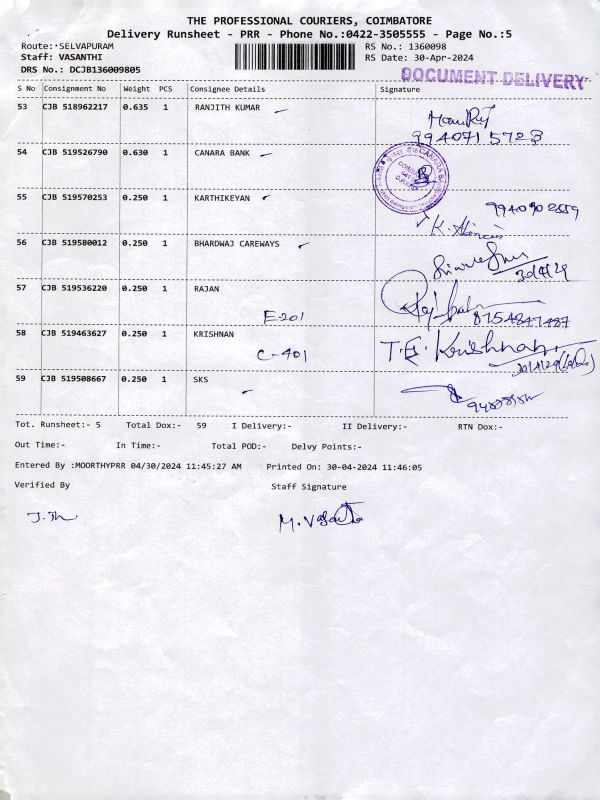 THE PROFESSIONAL COURIERS, COIMBATORE
Delivery Runsheet - PRR - Phone No.:0422-3505555 - Page No.:5
Route: SELVAPURAM RS No.: 1360098
Staff: VASANTHI RS Date: 30-Apr-2024
DRS No.: DCJB136009805 DOCUMENT DELIVERY
S No Consignment No Weight PCS Consignee Details Signature
53 CJB 518962217 0.635 1 RANJITH KUMAR
9940715723
54 CJB 519526790 0.630 1 CANARA BANK
55 CJB 519570253 0.250 1 KARTHIKEYAN
56 CJB 519580012 0.250 1 BHARDWAJ CAREWAYS
57 CJB 519536220 0.250 1 RAJAN
E-201 8754847487
58 CJB 519463627 0.250 1 KRISHNAN
C-401 T.E. Krishnan
59 CJB 519508667 0.250 1 SKS
Tot. Runsheet:- 5 Total Dox:- 59 I Delivery:- II Delivery:- RTN Dox:-
Out Time:- In Time:- Total POD:- Delvy Points:-
Entered By :MOORTHYPRR 04/30/2024 11:45:27 AM Printed On: 30-04-2024 11:46:05
Verified By Staff Signature
M. Vasantha